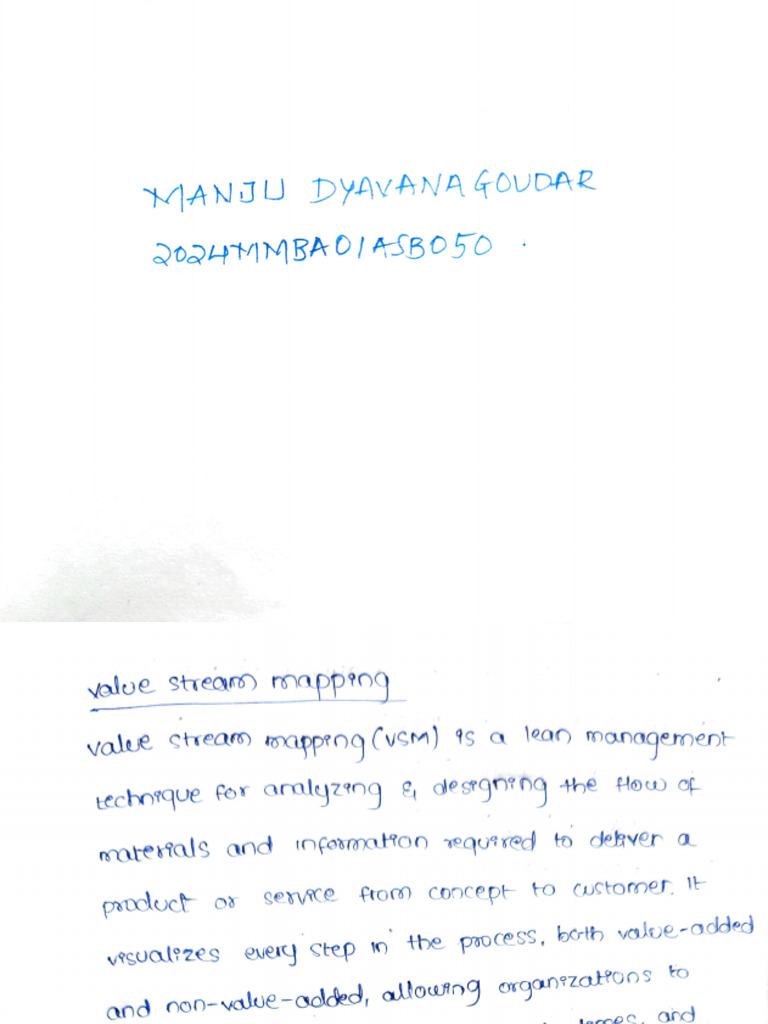 MANJU DYAVANAGOUDAR
2024MMBA01ASB050.
value stream mapping
value stream mapping (VSM) is a lean management
technique for analyzing & designing the flow of
materials and information required to deliver a
product or service from concept to customer. It
visualizes every step in the process, both value-added
and non-value-added, allowing organizations to
and